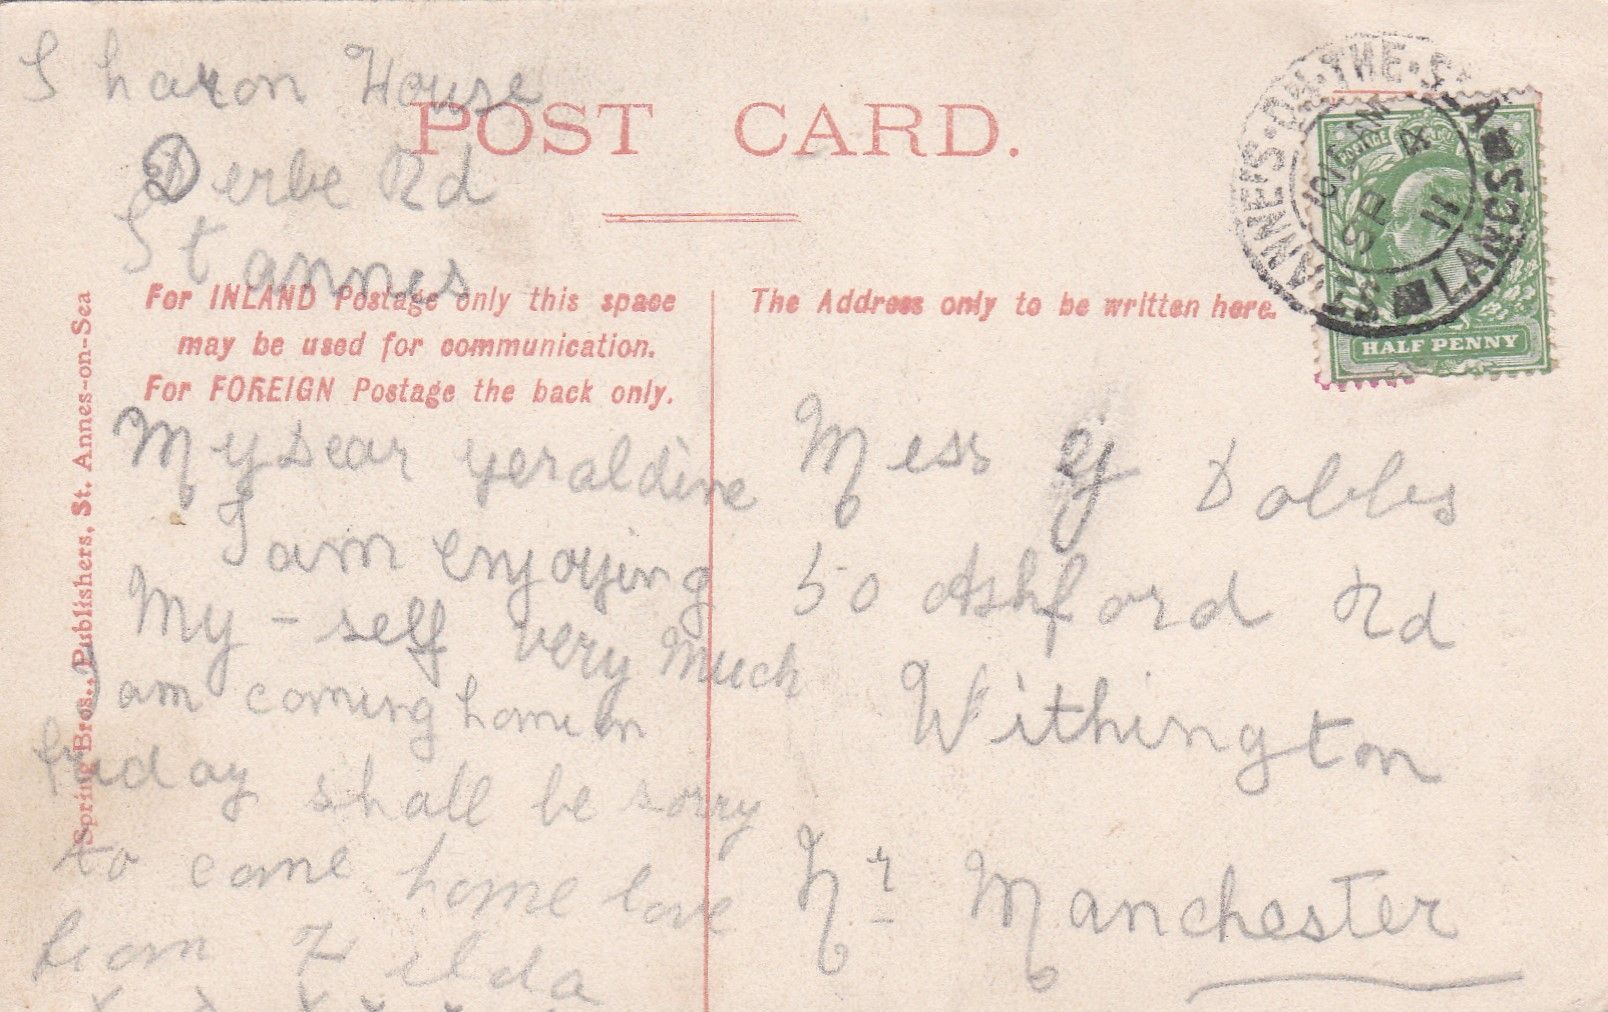 Sharon House
POST CARD.
Derbe Rd
St annes
For INLAND Postage only this space
may be used for communication.
For FOREIGN Postage the back only.
The Address only to be written here.
ST ANNE'S·ON·THE·SEA
LANCS
10 15 AM
SP 4
11
POSTAGE
HALF PENNY
Spring Bros., Publishers, St. Annes-on-Sea
My dear geraldine
I am enjoying
My-self very much
I am coming home on
friday shall be sorry
to come home love
from Hilda
x x x x x
Miss G Dobbs
50 Ashford Rd
Withington
Nr Manchester